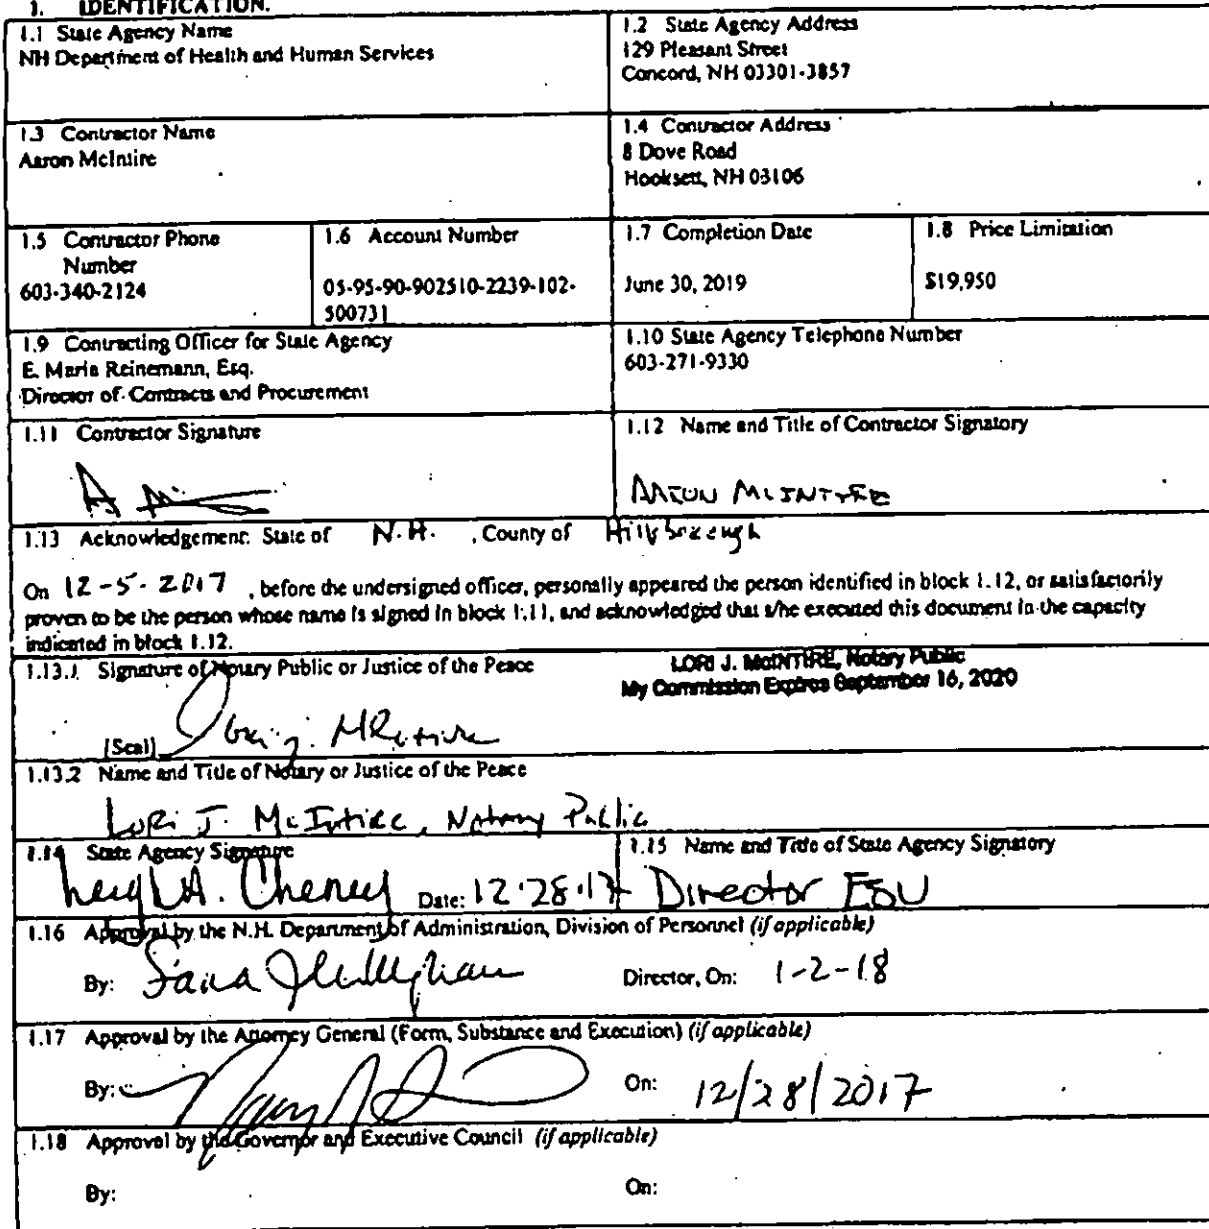 1. IDENTIFICATION.
1.1 State Agency Name
NH Department of Health and Human Services
1.2 State Agency Address
129 Pleasant Street
Concord, NH 03301-3857
1.3 Contractor Name
Aaron McIntire
1.4 Contractor Address
8 Dove Road
Hooksett, NH 03106
1.5 Contractor Phone
Number
603-340-2124
1.6 Account Number
05-95-90-902510-2239-102-
500731
1.7 Completion Date
June 30, 2019
1.8 Price Limitation
$19,950
1.9 Contracting Officer for State Agency
E. Maria Reinemann, Esq.
Director of Contracts and Procurement
1.10 State Agency Telephone Number
603-271-9330
1.11 Contractor Signature
1.12 Name and Title of Contractor Signatory
AARON McINTIRE
1.13 Acknowledgement: State of N.H. , County of Hillsborough
On 12-5-2017 , before the undersigned officer, personally appeared the person identified in block 1.12, or satisfactorily
proven to be the person whose name is signed in block 1.11, and acknowledged that s/he executed this document in the capacity
indicated in block 1.12.
1.13.1 Signature of Notary Public or Justice of the Peace
LORI J. McINTIRE, Notary Public
My Commission Expires September 16, 2020
[Seal] Lori J. McIntire
1.13.2 Name and Title of Notary or Justice of the Peace
Lori J. McIntire, Notary Public
1.14 State Agency Signature
A. Cheney Date: 12.28.17
1.15 Name and Title of State Agency Signatory
Director
1.16 Approval by the N.H. Department of Administration, Division of Personnel (if applicable)
By: Director, On: 1-2-18
1.17 Approval by the Attorney General (Form, Substance and Execution) (if applicable)
By: On: 12/28/2017
1.18 Approval by the Governor and Executive Council (if applicable)
By: On: